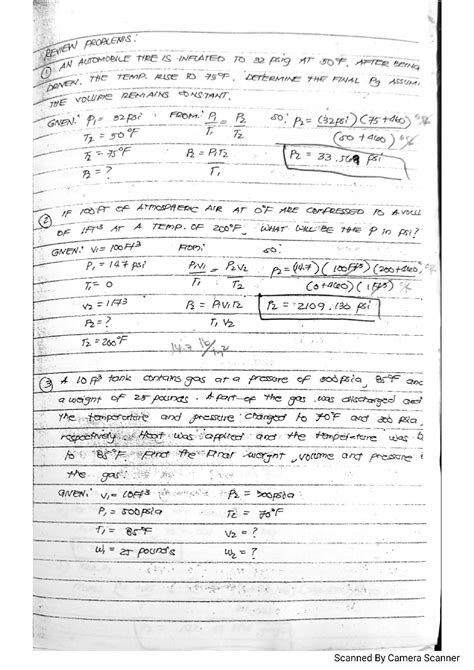 REVIEW PROBLEMS:
① AN AUTOMOBILE TIRE IS INFLATED TO 32 psig AT 50°F. AFTER BEING
DRIVEN. THE TEMP. RISE TO 75°F. DETERMINE THE FINAL Pg ASSUM.
THE VOLUME REMAINS CONSTANT.
GIVEN: P1 = 32psi FROM: P1/T1 = P2/T2 SO: P2 = (32psi)(75+460)/(50+460)
T1 = 50°F
T2 = 75°F P2 = P1T2/T1 P2 = 33.569 psi
P2 = ?
② IF 100FT OF ATMOSPHERIC AIR AT 0°F ARE COMPRESSED TO A VOLU
OF 1FT³ AT A TEMP. OF 200°F, WHAT WILL BE THE P IN PSI?
GIVEN: V1 = 100FT³ FROM: SO:
P1 = 14.7 psi P1V1/T1 = P2V2/T2 P2 = (14.7)(100FT³)(200+460)/(0+460)(1FT³)
T1 = 0
V2 = 1FT³ P2 = P1V1T2/T1V2 P2 = 2109.130 psi
P2 = ?
T2 = 200°F 14.7 lb/in²
③ A 10 ft³ tank contains gas at a pressure of 500psia, 85°F and
a weight of 25 pounds. A part of the gas was discharged and
the temperature and pressure changed to 70°F and 300 psia,
respectively. Heat was applied and the temperature was b
to 85°F. Find the final weight, volume and pressure
the gas.
GIVEN: V1 = 10FT³ P2 = 300psia
P1 = 500psia T2 = 70°F
T1 = 85°F V2 = ?
W1 = 25 pounds W2 = ?
Scanned By Camera Scanner